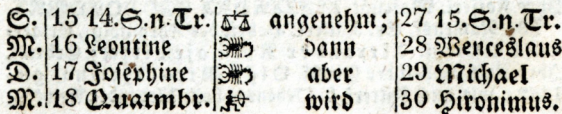 S. 15 14.S.n.Tr. ♎ angenehm; 27 15.S.n.Tr.
M. 16 Leontine ♏ dann 28 Wenceslaus
D. 17 Josephine ♏ aber 29 Michael
M. 18 Quatmbr. ♐ wird 30 Hironimus.